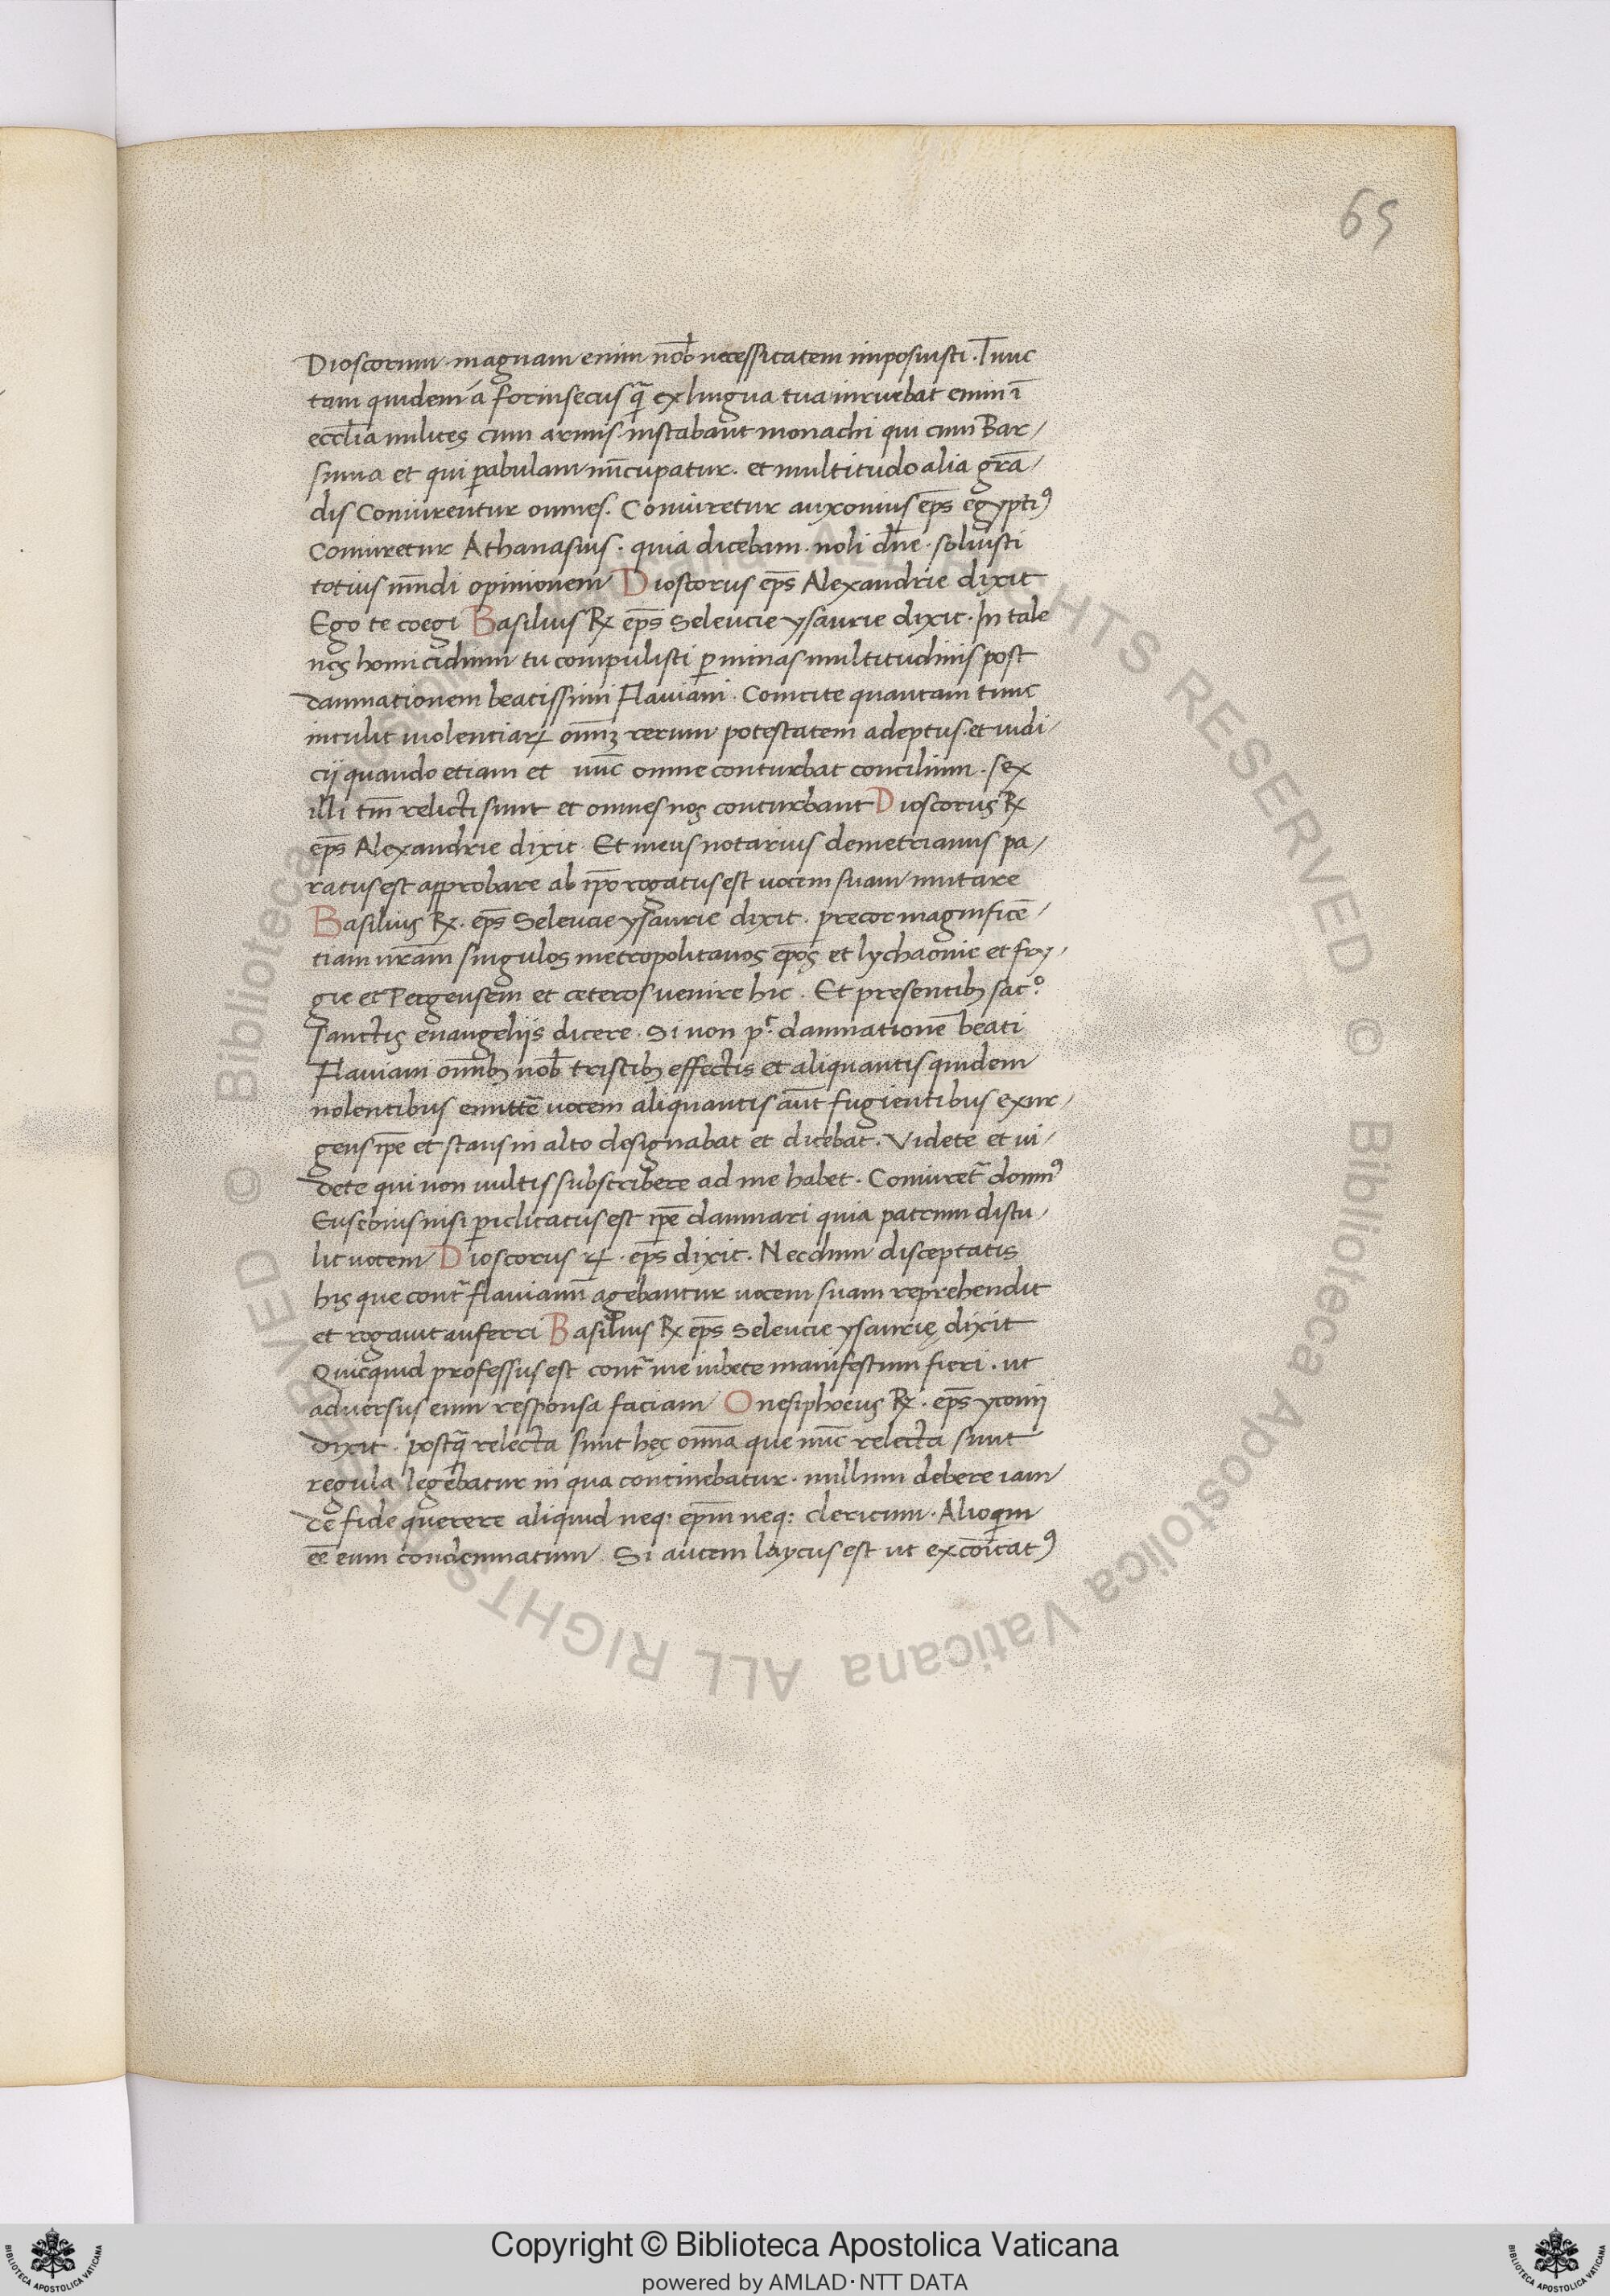 65
Dioscorum magnam enim nob̄ necessitatem imposuisti. Tunc
tam quidem á forinsecus q̄ ex lingua tua inruebat enim ī
eccl̄ia milites cum armis instabant monachi qui cum Bar/
suma et qui ꝑabulam nūcupatur. et multitudo alia grā/
dis Coniurentur omnes. Coniuretur auxonius ep̄s egyptiꝰ
Coniuretur Athanasius. quia dicebam. noli dn̄e. soluisti
totius mūdi opinionem Dioscorus ep̄s Alexandrie dixit
Ego te coegi Basilius R̸ ep̄s Seleucie ysaurie dixit. In tale
nos homicidium tu compulisti ꝑ minas multitudinis post
damnationem beatissimi Flauiani. Conicite quantam tunc
intulit uiolentiaꝝ omīuꝫ rerum potestatem adeptus. et iudi/
cij quando etiam et nūc omne conturbat concilium. sex
illi tm̄ relicti sunt et omnes nos conturbant Dioscorus R̸
ep̄s Alexandrie dixit. Et meus notarius demetrianus pa/
ratus est approbare ab ip̄o rogatus est uocem suam mutare
Basilius R̸. ep̄s Seleucie ysaurie dixit. precor magnificē/
tiam ur̄am singulos metropolitanos ep̄os et lychaonie et fry/
gie et Pergensem et ceteros uenire hic. Et presentibꝫ sac.º
sanctis euangelijs dicere. Si non p.ᵗ damnationē beati
Flauiani omībꝫ nob̄ tristibꝫ effectis et aliquantis quidem
nolentibus emittē uocem aliquantis aūt fugientibus exur/
gens ip̄e et stans in alto designabat et dicebat. Videte et ui/
dete qui non uultis subscribere ad me habet. Coniuret̄ domnꝰ
Eusebius nisi ꝑiclitatus est ip̄e damnari quia patrum distu/
lit uocem Dioscorus ꝝ. ep̄s dixit. Necdum disceptatis
his que cont̄ flauianū agebantur uocem suam reprehendit
et rogauit auferri Basilius R̸ ep̄s Seleucie ysaurię dixit
Quicquid professus est cont̄ me iubete manifestum fieri. ut
aduersus eum responsa faciam Onesiphorus R̸. ep̄s yconij
dixit. postq̄ relecta sunt hęc omīa que nūc relecta sunt
regula legebatur in qua continebatur. nullum debere iam
de fide querere aliquid neq: ep̄m neq: clericum. Alioquin
eē eum condemnatum. Si autem laycus est ut excōīcatꝰ
© Biblioteca Apostolica Vaticana ALL RIGHTS RESERVED © Biblioteca Apostolica Vaticana ALL RIGHTS RESERVED
Copyright © Biblioteca Apostolica Vaticana
powered by AMLAD·NTT DATA
BIBLIOTECA APOSTOLICA VATICANA
BIBLIOTECA APOSTOLICA VATICANA